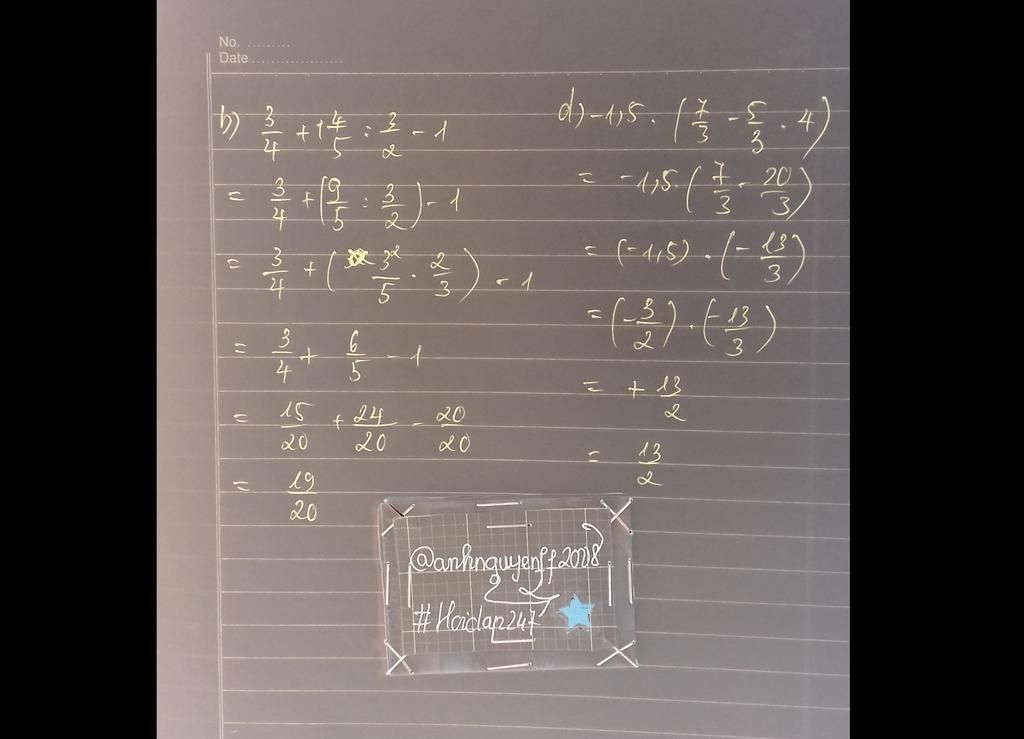 No. .........
Date ...................
b) 3/4 + 1 4/5 : 3/2 - 1
= 3/4 + (9/5 : 3/2) - 1
= 3/4 + (3²/5 . 2/3) - 1
= 3/4 + 6/5 - 1
= 15/20 + 24/20 - 20/20
= 19/20
d) -1,5 . (7/3 - 5/3 . 4)
= -1,5 . (7/3 - 20/3)
= (-1,5) . (-13/3)
= (-3/2) . (-13/3)
= + 13/2
= 13/2
@anhnguyenff2008
#Hoidap247